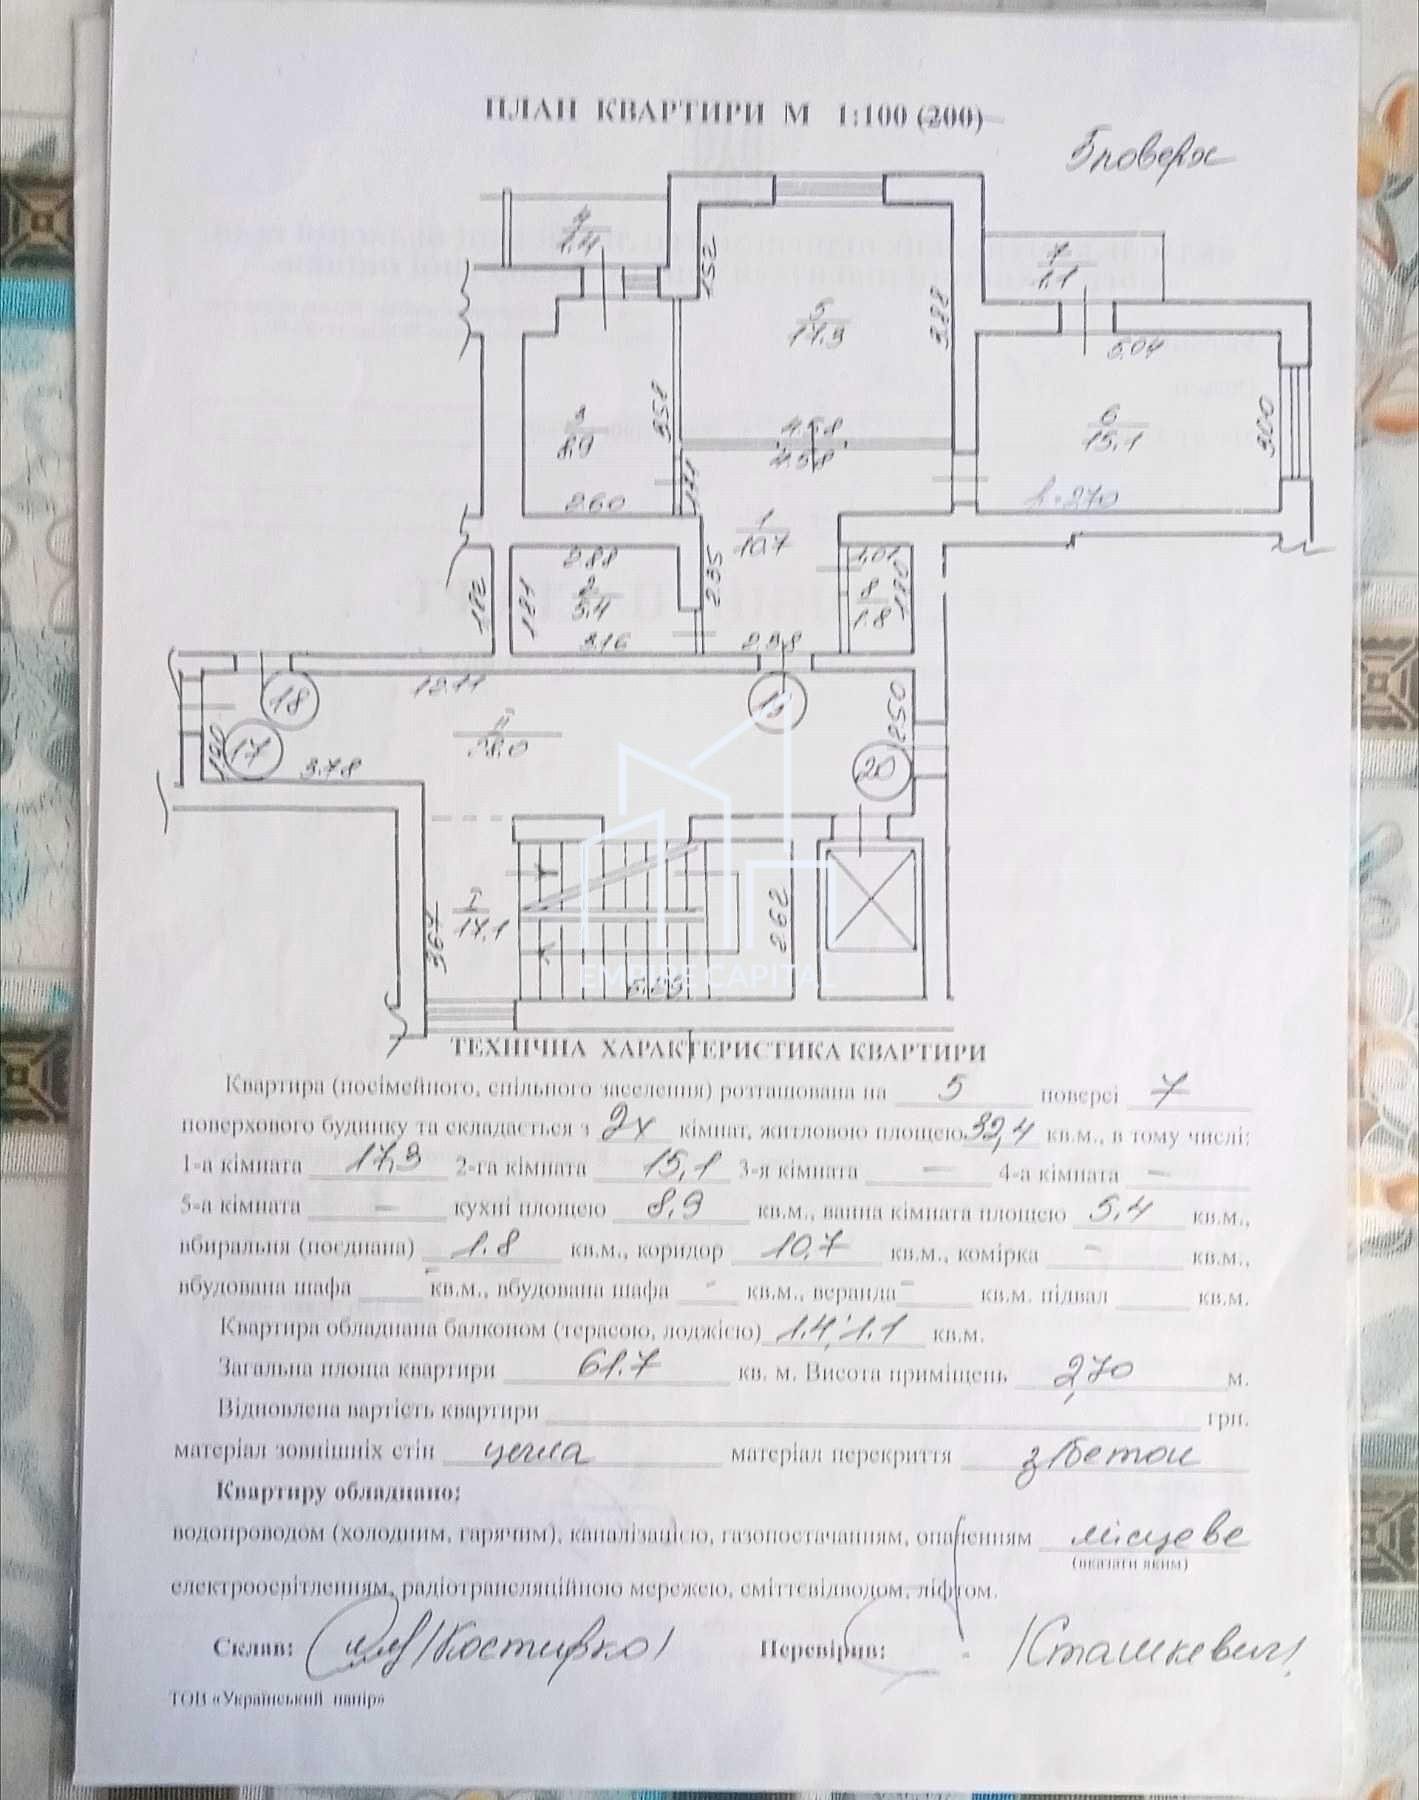 ПЛАН КВАРТИРИ М 1:100 (200)
5 поверх
4
1.4
7
1.1
1.52
5
17.3
3.88
5.04
3
8.9
3.51
4.58
4.58
6
15.1
3.00
2.60
1.71
h=2.70
1
10.7
2.88
1.01
1.82
1.81
2
5.4
2.35
8
1.8
1.80
3.16
2.38
12.11
18
19
II
28.0
2.50
1.20
17
3.78
20
I
17.1
3.67
2.62
EMPIRE CAPITAL
ТЕХНІЧНА ХАРАКТЕРИСТИКА КВАРТИРИ
Квартира (посімейного, спільного заселення) розташована на 5 поверсі 7
поверхового будинку та складається з 2х кімнат, житловою площею 32,4 кв.м., в тому числі:
1-а кімната 17,3 2-га кімната 15,1 3-я кімната — 4-а кімната —
5-а кімната — кухні площею 8,9 кв.м., ванна кімната площею 5,4 кв.м.,
вбиральня (поєднана) 1.8 кв.м., коридор 10,7 кв.м., комірка - кв.м.,
вбудована шафа - кв.м., вбудована шафа - кв.м., веранда - кв.м. підвал кв.м.
Квартира обладнана балконом (терасою, лоджією) 1.4; 1.1 кв.м.
Загальна площа квартири 61.7 кв. м. Висота приміщень 2,70 м.
Відновлена вартість квартири грн.
матеріал зовнішніх стін цегла матеріал перекриття з/бетон
Квартиру обладнано:
водопроводом (холодним, гарячим), каналізацією, газопостачанням, опаленням місцеве
(вказати яким)
електроосвітленням, радіотрансляційною мережею, сміттєвідводом, ліфтом.
Склав: /Костирко/ Перевірив: /Сташкевич/
ТОВ «Український папір»